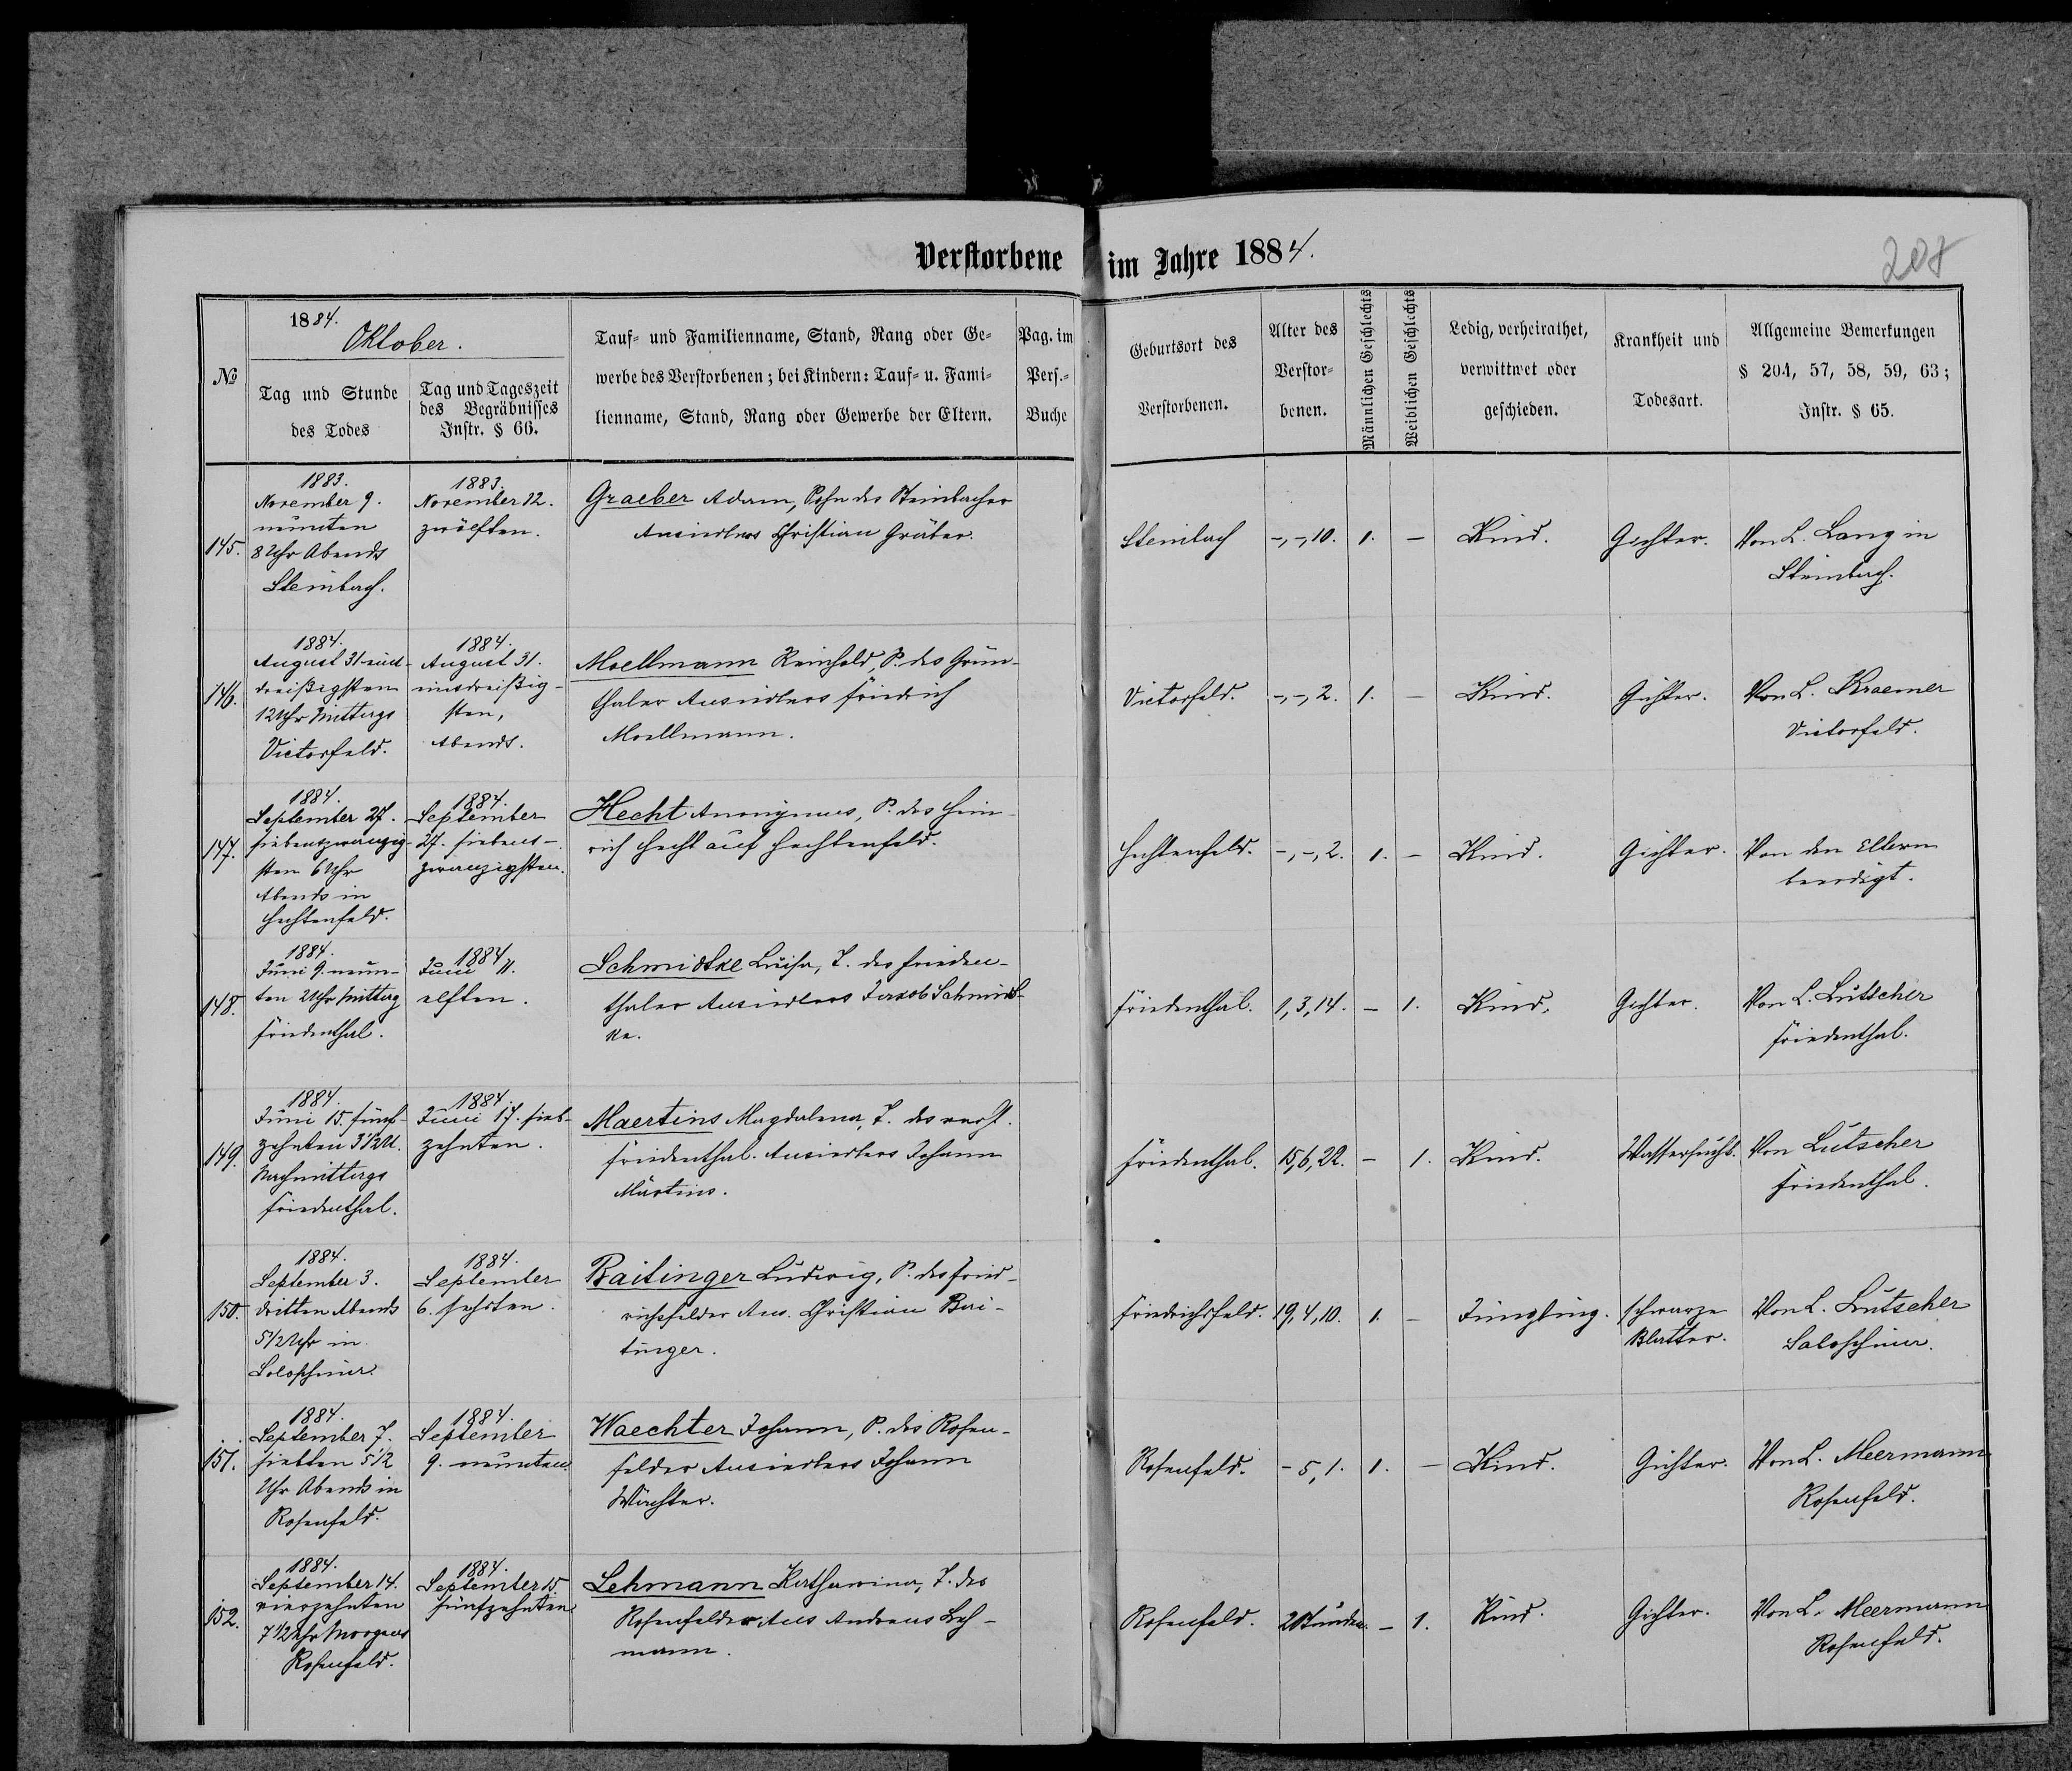 Verstorbene im Jahre 1884.
208
№
1884.
Oktober.
Tag und Stunde
des Todes
Tag und Tageszeit
des Begräbnisses
Instr. § 66.
Tauf- und Familienname, Stand, Rang oder Ge-
werbe des Verstorbenen; bei Kindern: Tauf- u. Fami-
lienname, Stand, Rang oder Gewerbe der Eltern.
Pag. im
Pers.-
Buche
Geburtsort des
Verstorbenen.
Alter des
Verstor-
benen.
Männlichen Geschlechts
Weiblichen Geschlechts
Ledig, verheirathet,
verwittwet oder
geschieden.
Krankheit und
Todesart.
Allgemeine Bemerkungen
§ 204, 57, 58, 59, 63;
Instr. § 65.
145.
1883.
November 9.
neunten
8 Uhr Abends
Steinbach.
1883.
November 12.
zwölften.
Graeber Adam, Sohn des Steinbacher
Ansiedlers Christian Gräber.
Steinbach
-,-,10.
1.
-
Kind.
Gichter.
Von L. Lang in
Steinbach.
146.
1884.
August 31 einund-
dreißigsten
12 Uhr Mittags
Victorfeld.
1884.
August 31.
einunddreißig-
sten,
Abends.
Moellmann Reinhold, S. des Grün-
thaler Ansiedlers Friedrich
Moellmann.
Victorfeld.
-,-,2.
1.
-
Kind.
Gichter.
Von L. Kraemer
Victorfeld.
147.
1884.
September 27.
siebenzwanzig-
sten 6 Uhr
Abends in
Hechtenfeld.
1884.
September
27. sieben-
zwanzigsten.
Hecht Anonymus, S. des Hein-
rich Hecht auf Hechtenfeld.
Hechtenfeld.
-,-,2.
1.
-
Kind.
Gichter.
Von den Eltern
beerdigt.
148.
1884.
Juni 9. neun-
ten 2 Uhr Mittag
Friedenthal.
1884
Juni 11.
elften.
Schmidtke Luise, T. des Frieden-
thaler Ansiedlers Jakob Schmidt-
ke.
Friedenthal.
1,3,14.
-
1.
Kind.
Gichter.
Von L. Lutscher
Friedenthal.
149.
1884.
Juni 15. fünf-
zehnten 3 1/2 U.
Nachmittags
Friedenthal.
1884.
Juni 17. sieb-
zehnten.
Maertins Magdalena, T. des verst.
Friedenthal. Ansiedlers Johann
Märtins.
Friedenthal.
15,6,22.
-
1.
Kind.
Wassersucht.
Von Lutscher
Friedenthal.
150.
1884.
September 3.
dritten Abends
5 1/2 Uhr in
1884.
September
6. sechsten.
Baitinger Ludwig, S. des Fried-
richsfelder Ans. Christian Bai-
tinger.
Friedrichsfeld.
19,4,10.
1.
-
Jüngling.
schwarze
Blatter.
Von L. Lutscher
151.
1884.
September 7.
siebten 5 1/2
Uhr Abends in
Rosenfeld.
1884.
September
9. neunten.
Waechter Johann, S. des Rosen-
felder Ansiedlers Johann
Wächter.
Rosenfeld.
- 5, 1.
1.
-
Kind.
Gichter.
Von L. Meermann
Rosenfeld.
152.
1884.
September 14.
vierzehnten
7 1/2 Uhr Morgens
Rosenfeld.
1884.
September 15.
fünfzehnten
Lehmann Katharina, T. des
Rosenfelder Ans Andreas Leh-
mann.
Rosenfeld.
2 Stunden.
-
1.
Kind.
Gichter.
Von L. Meermann
Rosenfeld.